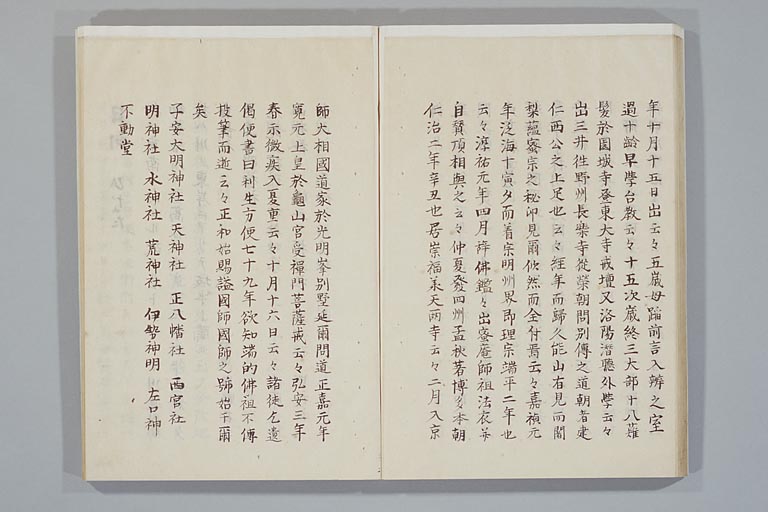 年十月十五日出云々五歳母踰前言入辨之室
過十齢早學台教云々十五次歳終三大部十八薙
髪於園城寺登東大寺戒壇又洛陽潜聽外學云々
出三井徃野州長樂寺從榮朝問別傳之道朝者建
仁西公之上足也云々經年而歸久能山有見而闍
梨蘊密宗之秘印見爾俊然而全付焉云々嘉禎元
年泛海十寅夕而着宗明州界即理宗端平二年也
云々淳祐元年四月辞佛鑑々出密庵師祖法衣并
自賛頂相與之云々仲夏發四州孟秋著博多本朝
仁治二年辛丑也居崇福萊天两寺云々二月入京
師大相國道家於光明峯別墅延爾問道正嘉元年
寛元上皇於龜山宮受禪門菩薩戒云々弘安三年
春示微疾入夏重云々十月十六日云々諸徒乞遺
偈便書曰利生方便七十九年欲知端的佛祖不傳
投筆而逝云々正和始賜謚國師國師之號始于爾
矣
子安大明神社 天神社 正八幡社 西宮社
明神社 水神社 荒神社 伊勢神明 左口神
不動堂